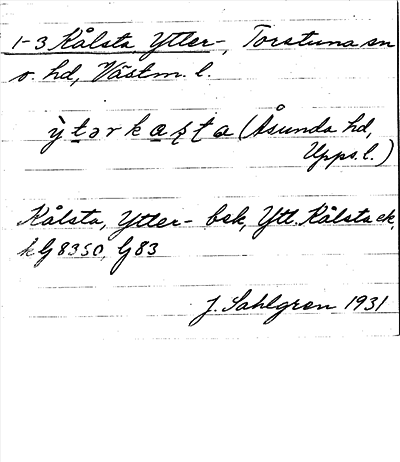 1-3 Kålsta, Ytter-, Torstuna sn
o. hd, Västm. l.
ỳtərkaşta (Åsunda hd,
Upps. l.)
Kålsta, Ytter- bsk, Ytt. Kålsta ek,
k G 83 SO, G 83
J. Sahlgren 1931